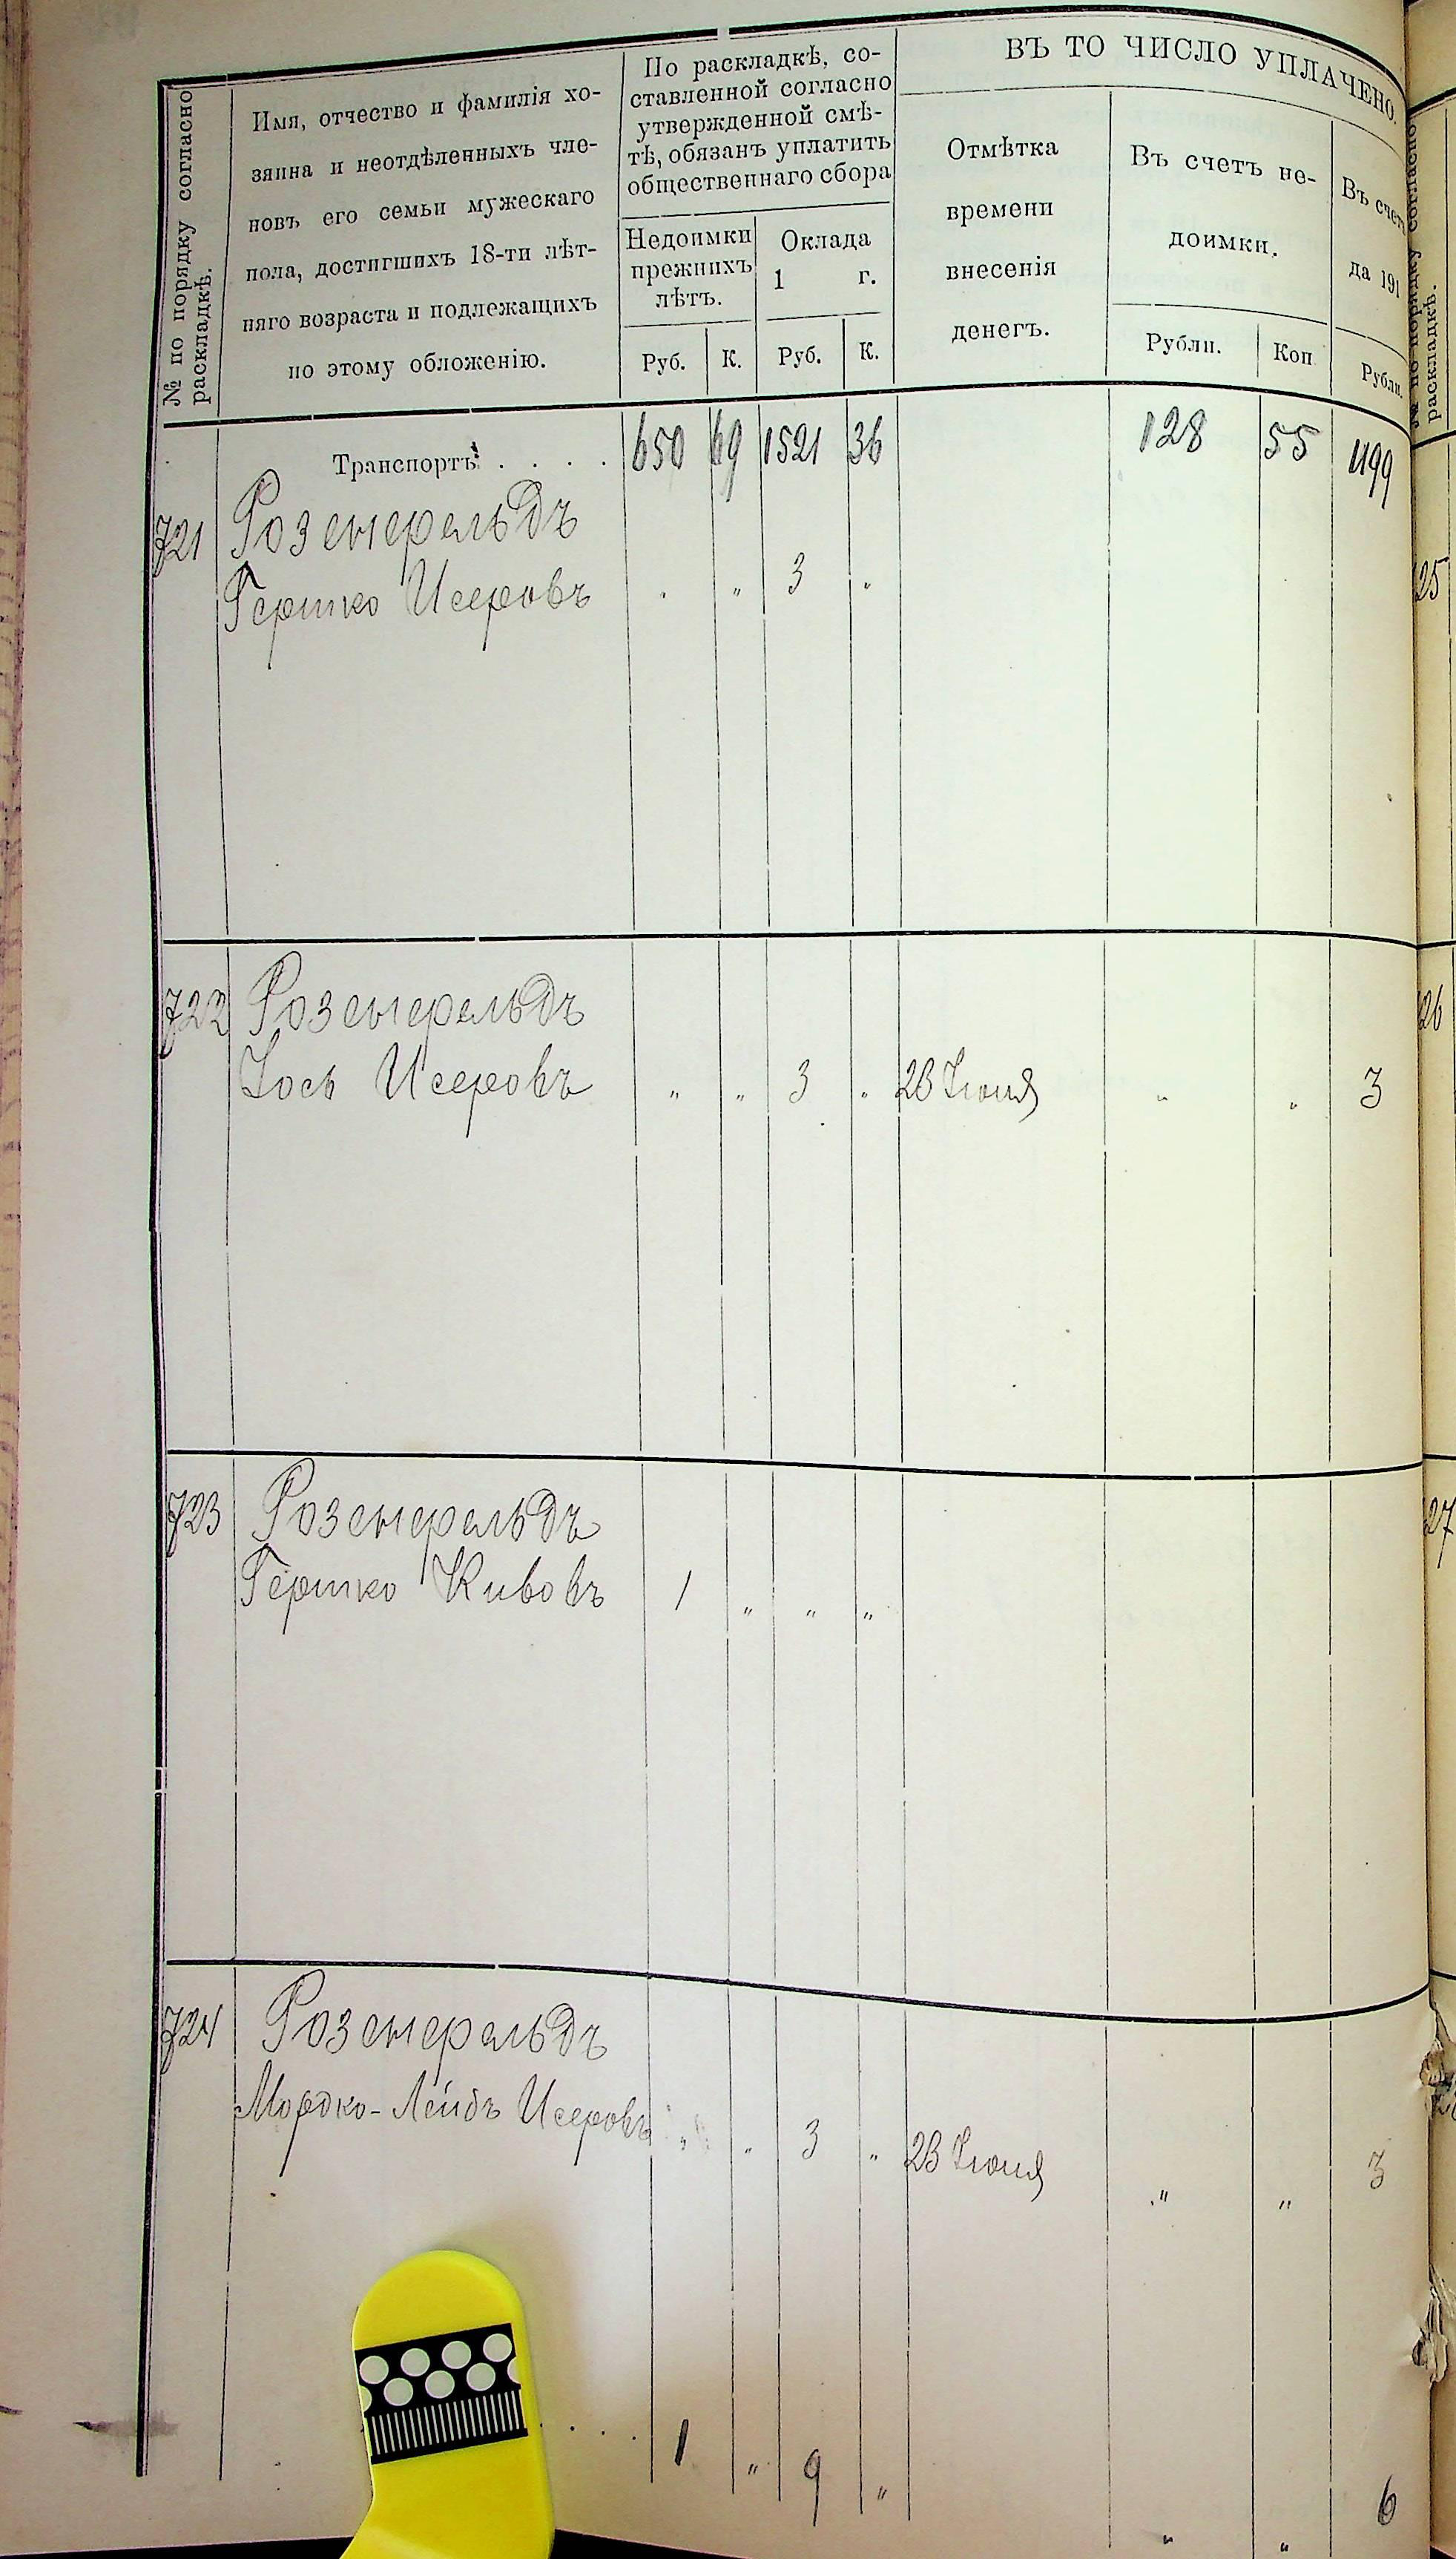 № по порядку согласно
раскладкѣ.
Имя, отчество и фамилія хо-
зяина и неотдѣленныхъ чле-
новъ его семьи мужескаго
пола, достигшихъ 18-ти лѣт-
няго возраста и подлежащихъ
по этому обложенію.
По раскладкѣ, со-
ставленной согласно
утвержденной смѣ-
тѣ, обязанъ уплатить
общественнаго сбора
Недоимки
прежнихъ
лѣтъ.
Оклада
1 г.
Руб. К. Руб. К.
ВЪ ТО ЧИСЛО УПЛАЧЕНО.
Отмѣтка
времени
внесенія
денегъ.
Въ счетъ не-
доимки.
Рубли. Коп
Въ счет
да 191
Рубли.
Транспортъ . . . . 650 69 1521 36 128 55 1199
721 Розенфельдъ
Гершко Исеровъ . „ 3 „
722 Розенфельдъ
Іось Исеровъ „ „ 3 „ 23 Іюня „ „ 3
723 Розенфельдъ
Гершко Кивовъ 1 „ „ „
724 Розенфельдъ
Мордко-Лейбъ Исеровъ „ „ 3 „ 23 Іюня „ „ 3
1 „ 9 „ „ „ 6
№ по порядку согласно
раскладкѣ.
25
26
27